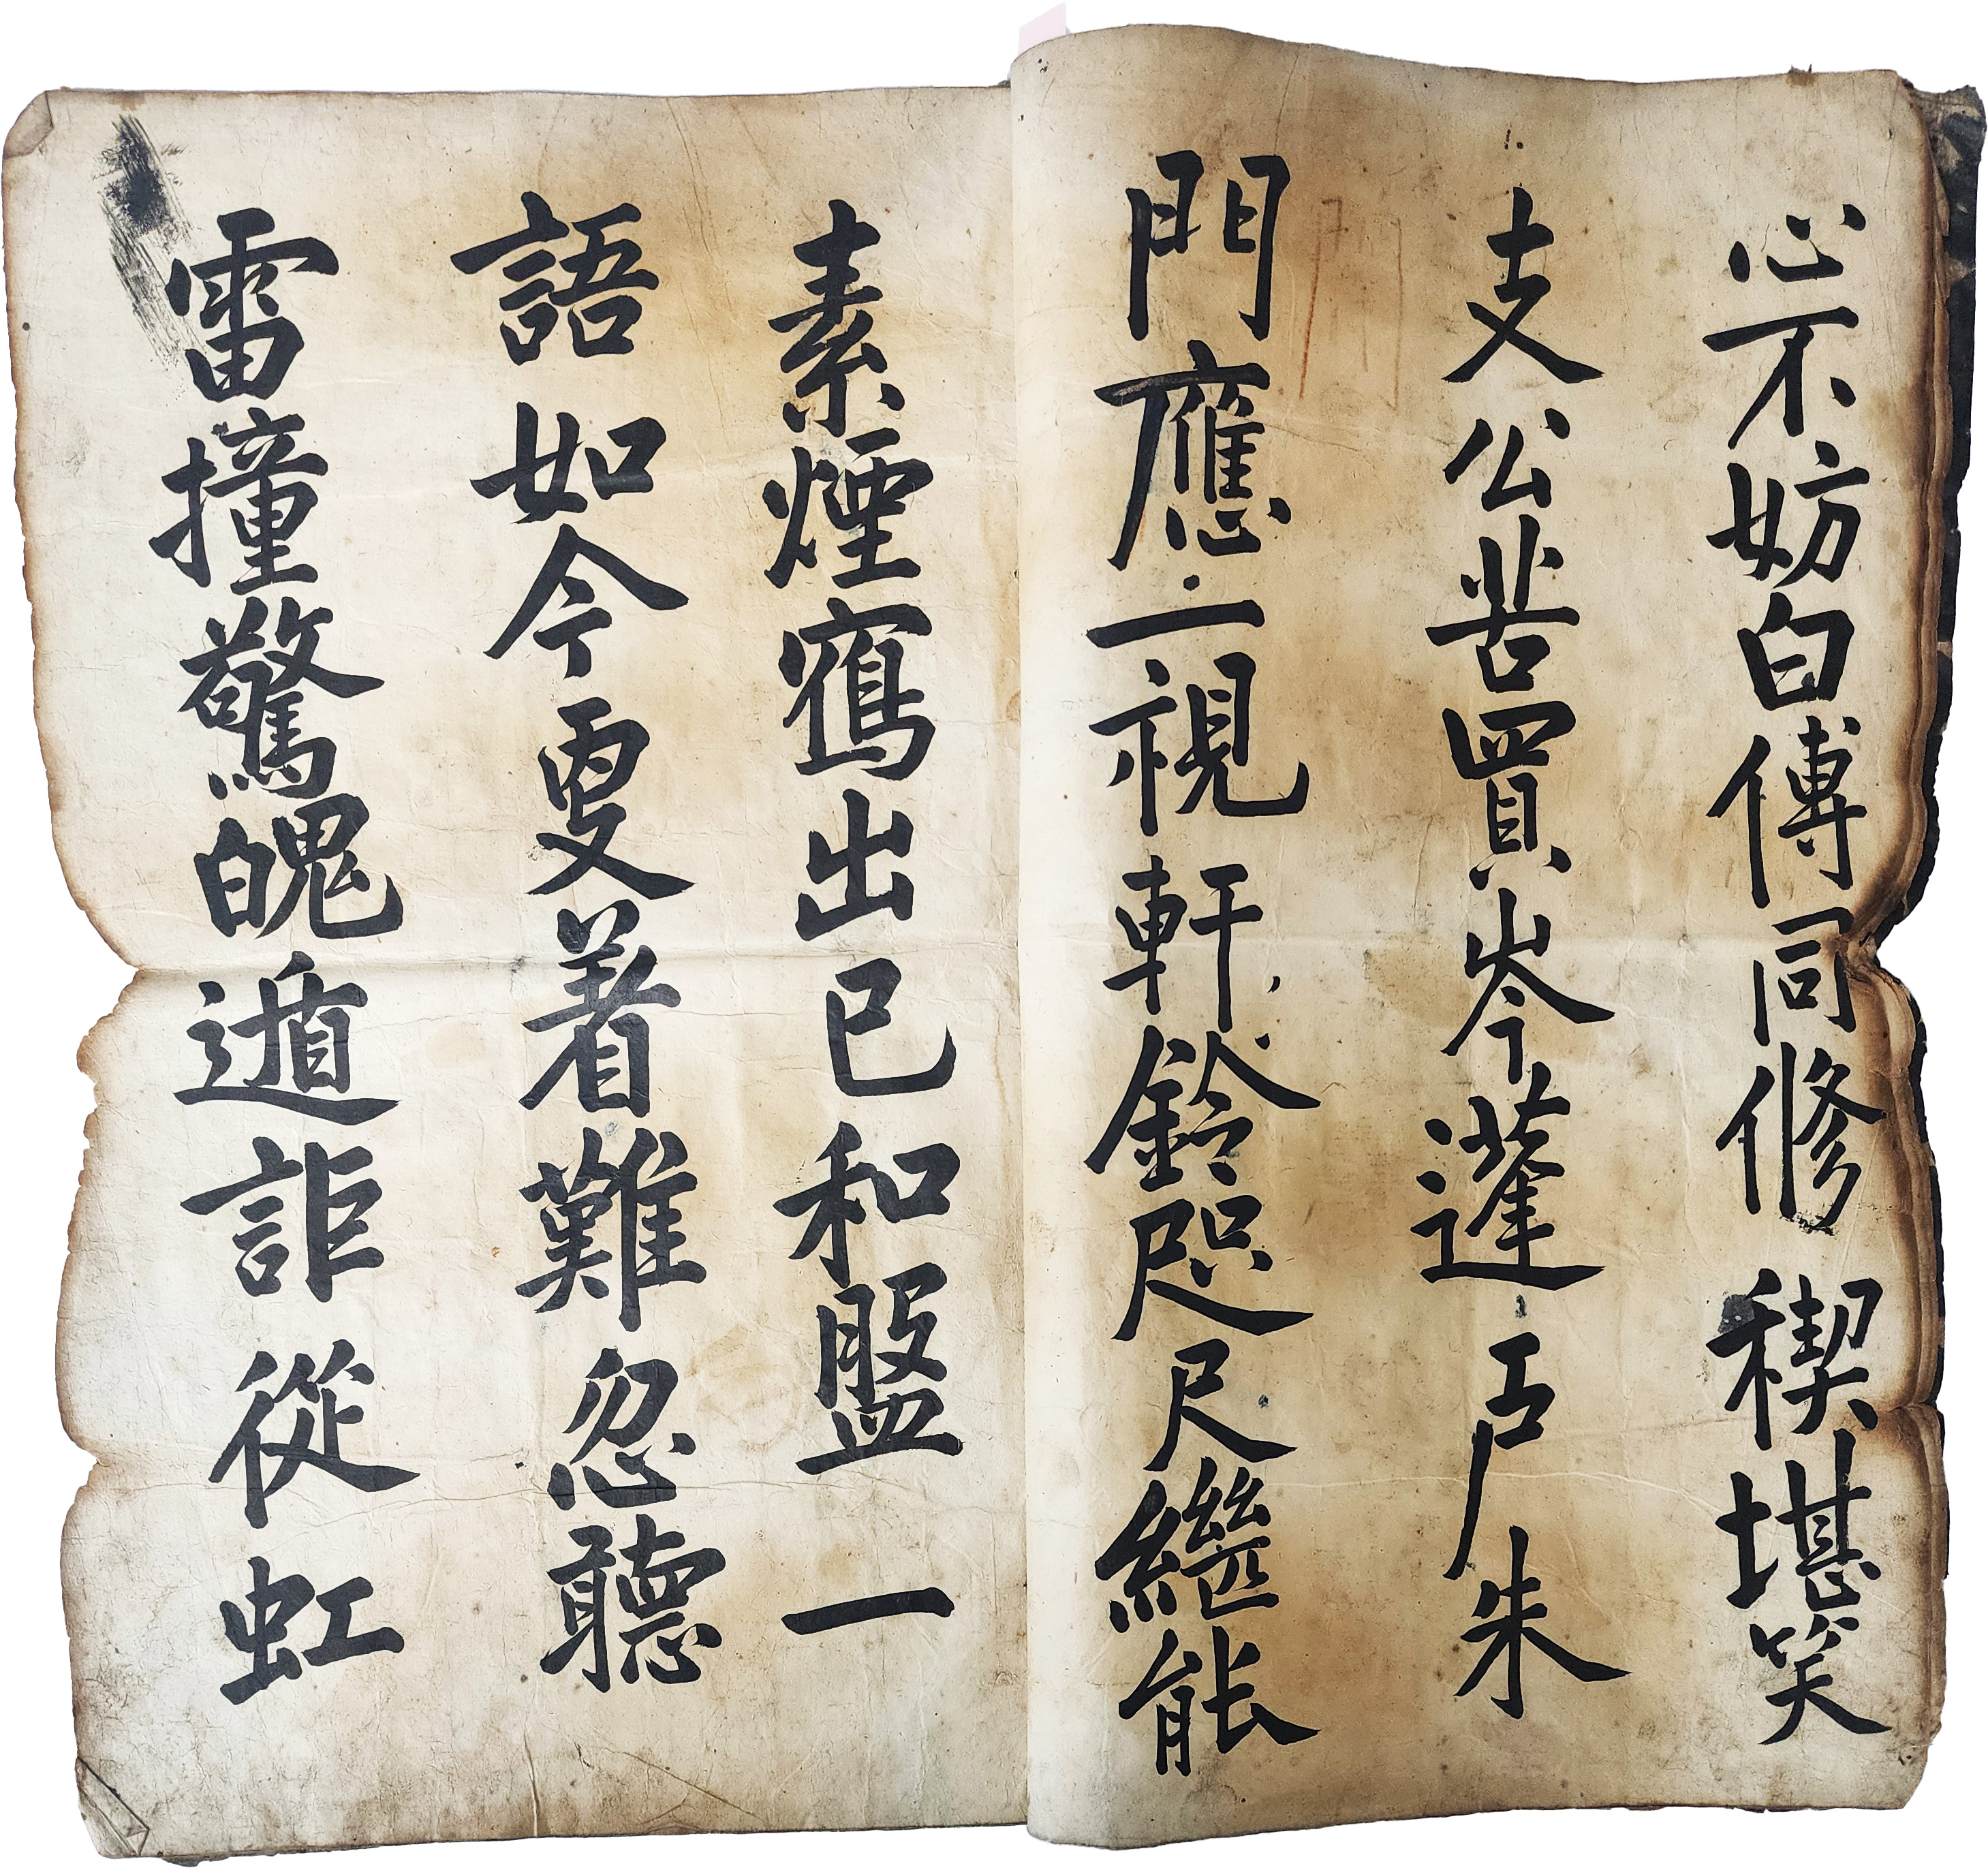 心不妨白傅同修稧堪笑
支公苦買岑蓬戶朱
門應一視軒鈴咫尺繼能
素煙出已和盤一
語如今更着難忽聽
雷撞驚魄遁詎從虹